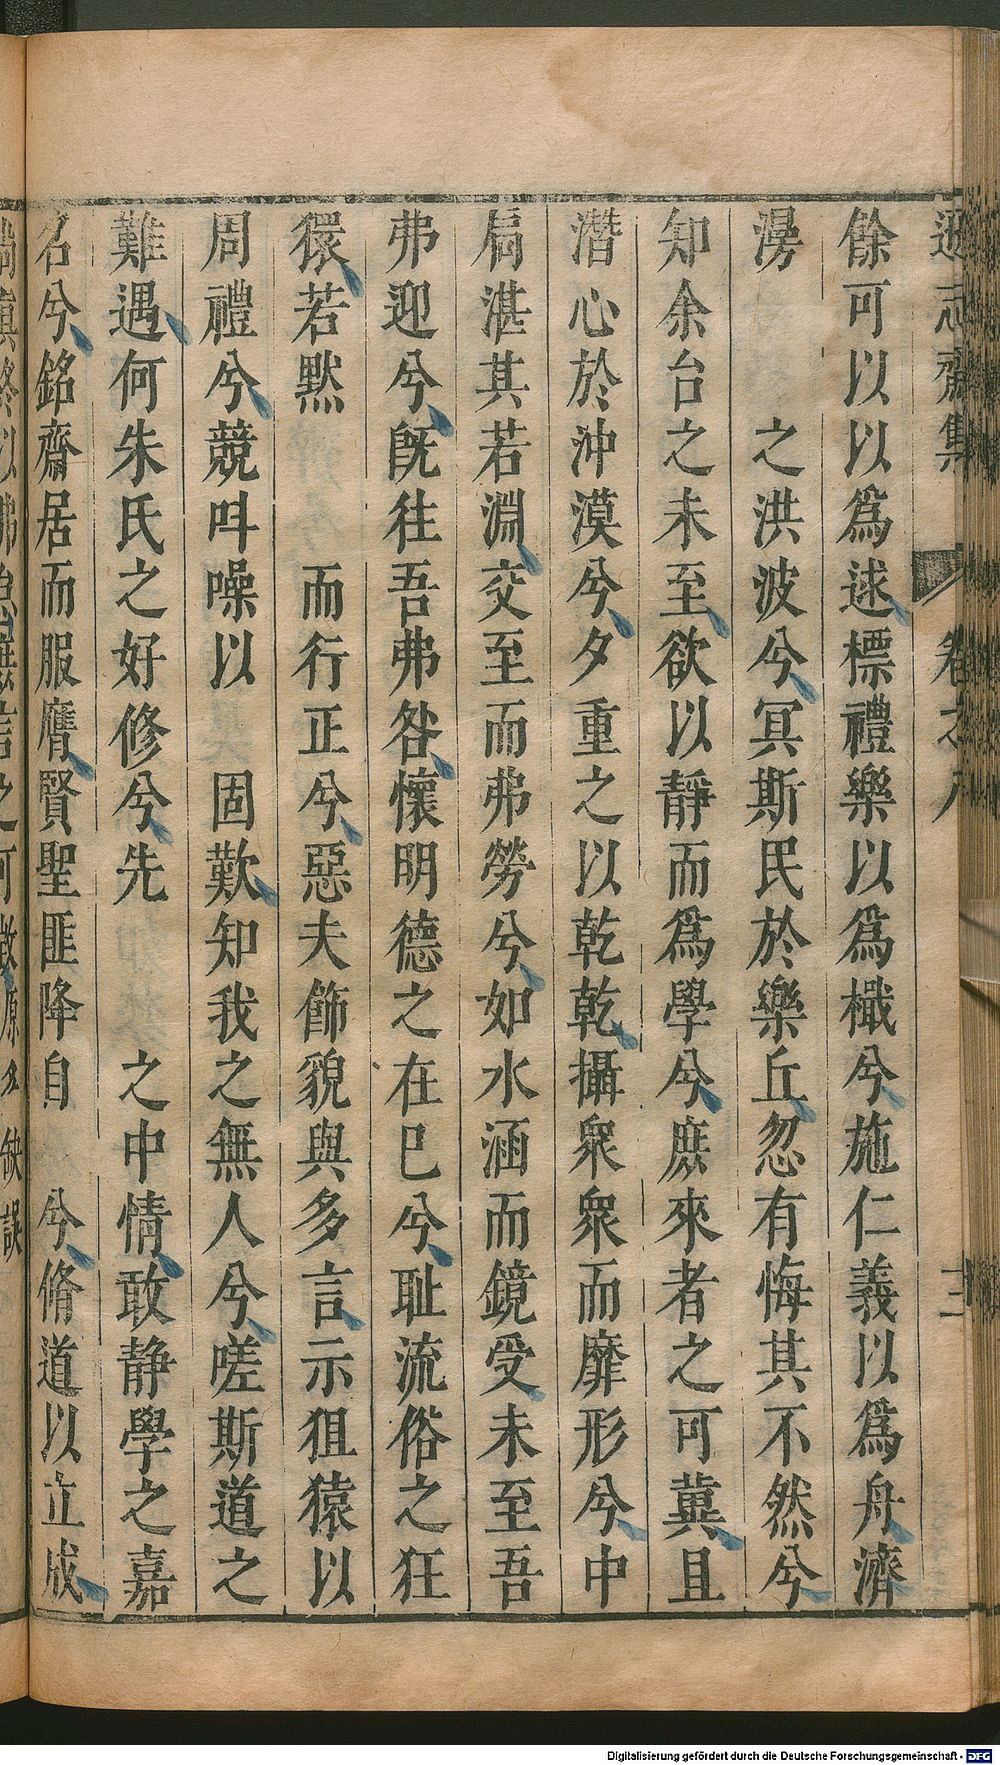 遜志齋集　卷之八　十二
餘可以以爲逑標禮樂以爲檝兮施仁義以爲舟濟
澷　　之洪波兮冥斯民於樂丘忽有悔其不然兮
知余台之未至欲以靜而爲學兮庶來者之可冀且
潛心於沖漠兮夕重之以乾乾攝衆衆而靡形兮中
扃湛其若淵交至而弗勞兮如水涵而鏡受未至吾
弗迎兮旣往吾弗咎懷明德之在已兮耻流俗之狂
獧若黙　　而行正兮惡夫飾貌與多言示狙猿以
周禮兮競呌噪以　固歎知我之無人兮嗟斯道之
難遇何朱氏之好修兮先　　之中情敢静學之嘉
名兮銘齋居而服膺賢聖匪降自　兮脩道以立成
Digitalisierung gefördert durch die Deutsche Forschungsgemeinschaft - DFG